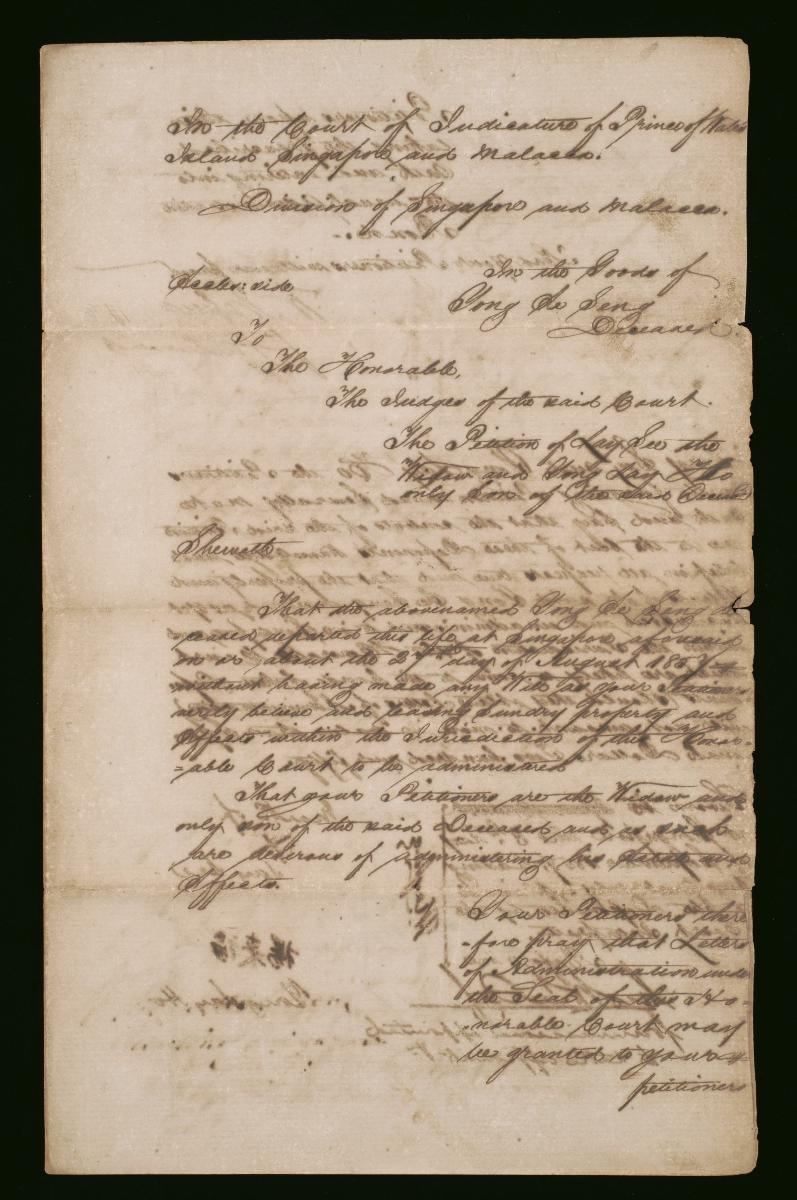 In the Court of Judicature of Prince of Wales
Island Singapore and Malacca.
Division of Singapore and Malacca.
In the Goods of
Eccles: side
Yong Se Seng
Deceased.
To
The Honorable,
The Judges of the said Court.
The Petition of Lay See the
Widow and Yong Lay Ho
only Son of the said Deceased
Sheweth
That the abovenamed Yong Se Seng de
ceased departed this life at Singapore aforesaid
on or about the 27th day of August
without having made any Will as your Petitioners
verily believe and leaving Sundry property and
Effects within the Jurisdiction of this Honor-
-able Court to be administered
That your Petitioners are the Widow and
only son of the said Deceased and as such
are desirous of administering his Estate and
Effects.
Your Petitioners there
-fore pray that Letters
of Administration under
the Seal of this Ho-
-norable Court may
be granted to your
petitioners